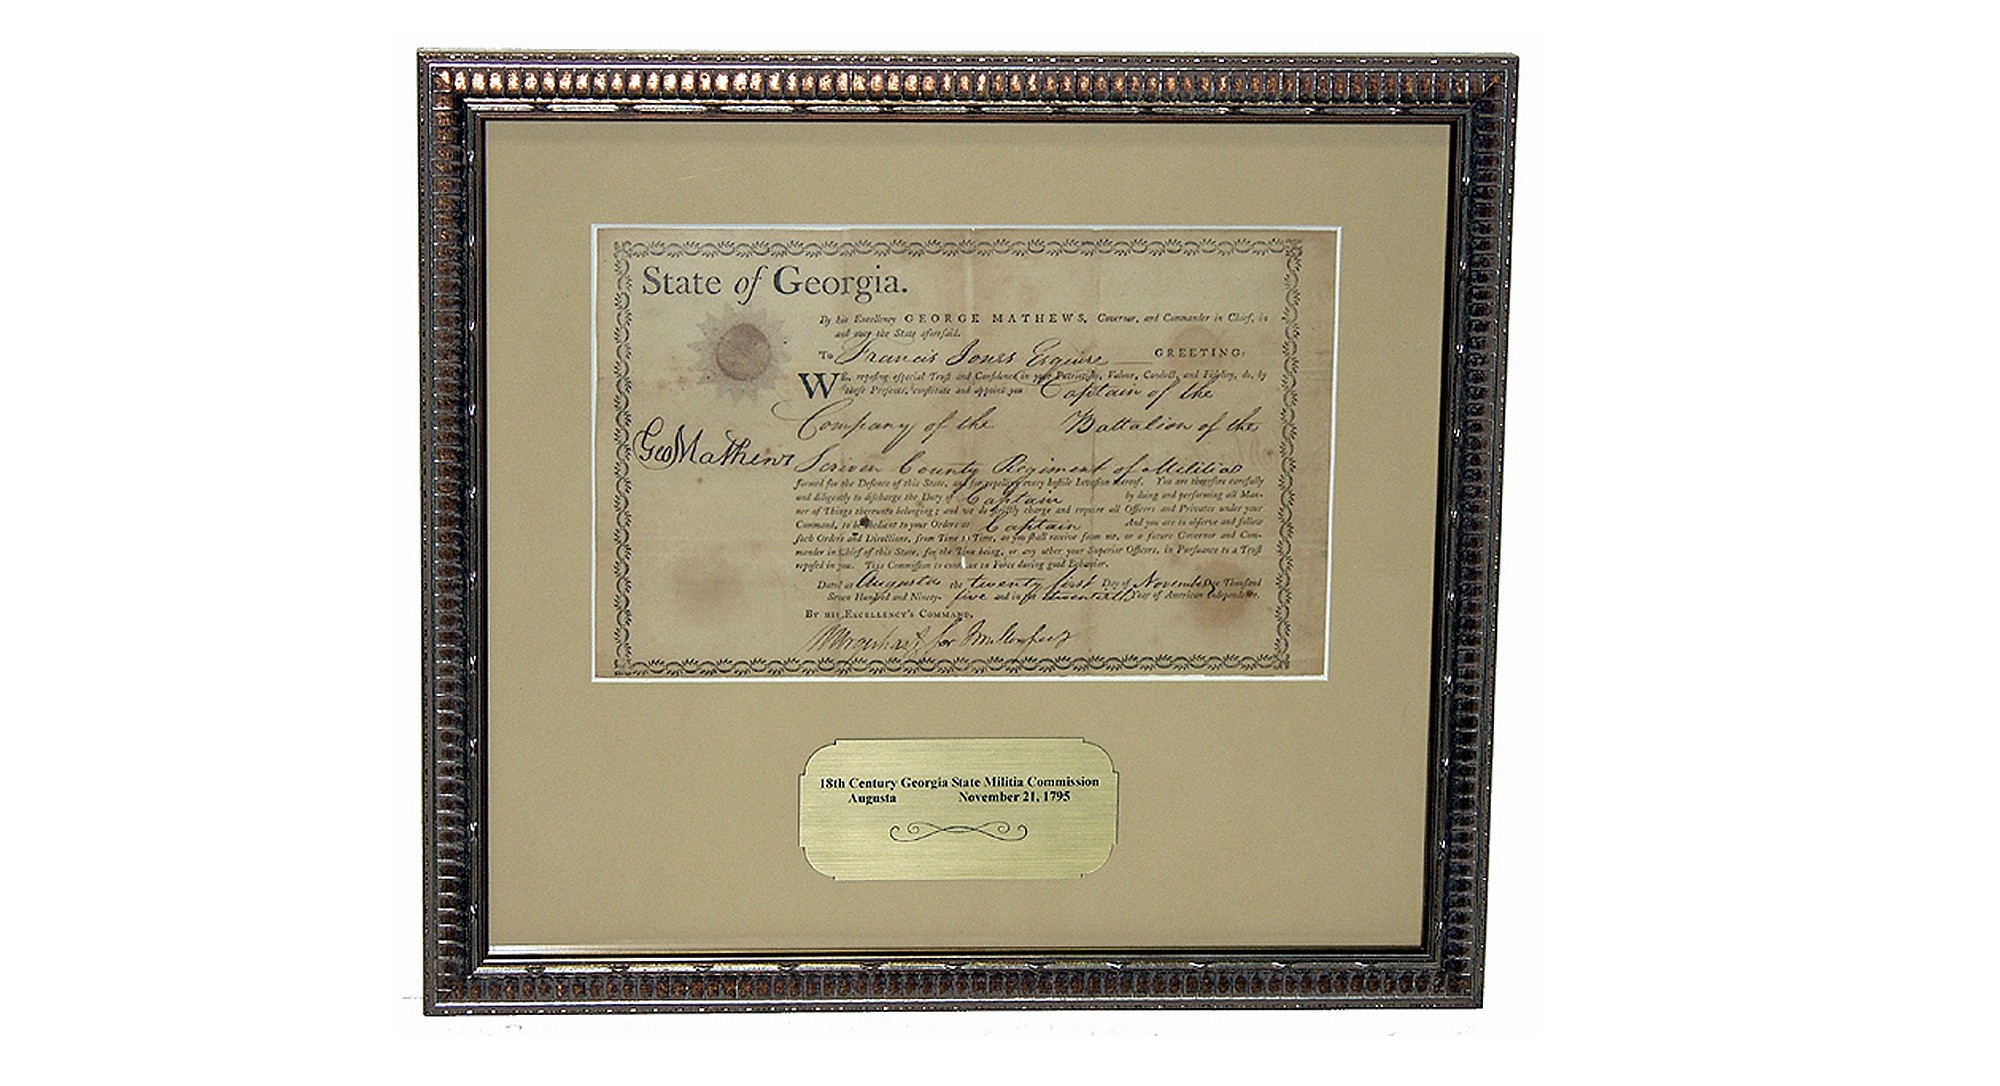 State of Georgia.
By his Excellency GEORGE MATHEWS, Governor, and Commander in Chief, in
and over the State aforesaid.
To Francis Jones Esquire GREETING:
WE, reposing especial Trust and Confidence in your Patriotism, Valour, Conduct, and Fidelity, do, by
these Presents, constitute and appoint you Captain of the
Company of the Battalion of the
Geo Mathews
Scriven County Regiment of Militia
formed for the Defence of this State, and for repelling every hostile Invasion thereof. You are therefore carefully
and diligently to discharge the Duty of Captain by doing and performing all Man-
ner of Things thereunto belonging; and we do strictly charge and require all Officers and Privates under your
Command, to be obedient to your Orders as Captain And you are to observe and follow
such Orders and Directions, from Time to Time, as you shall receive from me, or a future Governor and Com-
mander in Chief of this State, for the Time being, or any other your Superior Officers, in Pursuance to a Trust
reposed in you. This Commission to continue in Force during good Behavior.
Dated at Augusta the twenty first Day of November One Thousand
Seven Hundred and Ninety-five and in the twentieth Year of American Independence.
BY HIS EXCELLENCY'S COMMAND,
for
18th Century Georgia State Militia Commission
Augusta November 21, 1795